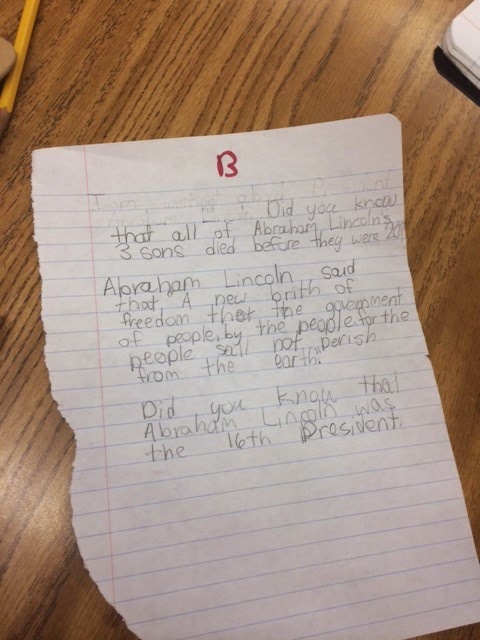 B
Did you know
that all of Abraham Lincoln's
3 sons died before they were 20?
Abraham Lincoln said
that A new brith of
freedom that the government
of people, by the people. for the
people sall not perish
from the earth."
Did you know that
Abraham Lincoln was
the 16th President.